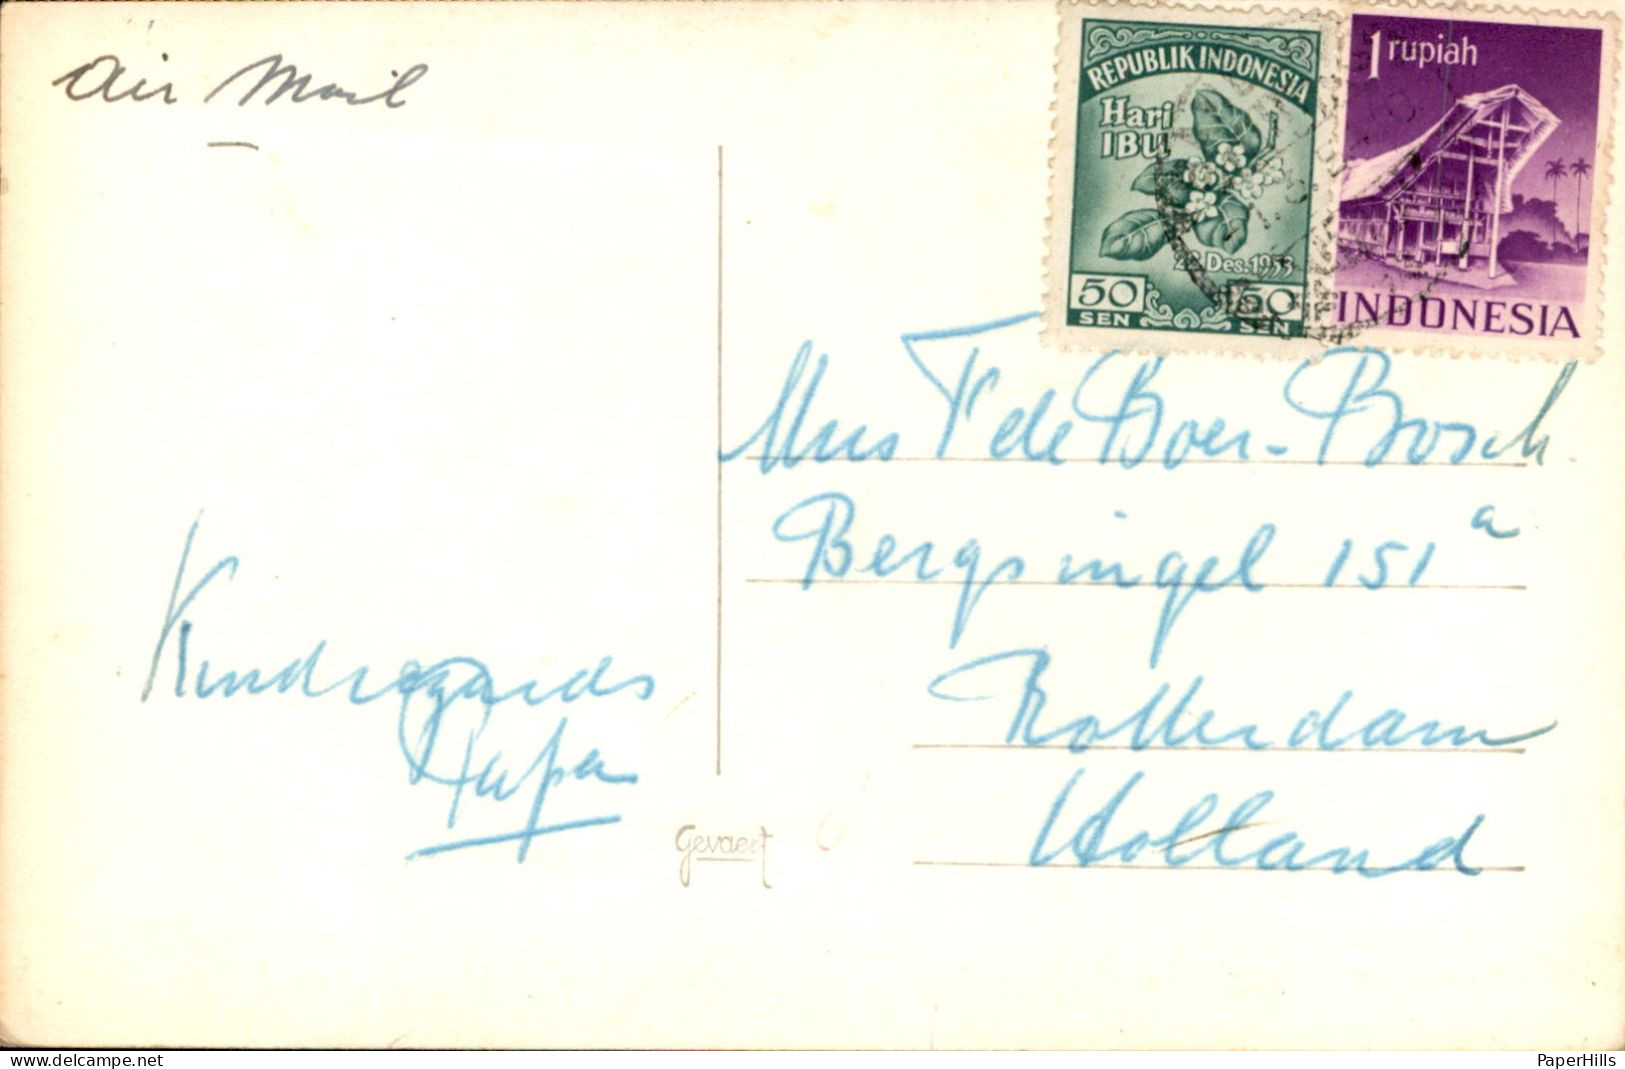 Air Mail
REPUBLIK INDONESIA
Hari
IBU
22 Des. 1953
50 50
SEN SEN
1 rupiah
INDONESIA
Mrs F de Boer-Bosch
Bergsingel 151 a
Rotterdam
Holland
Kind regards
Papa
Gevaert
delcampe.net
PaperHills